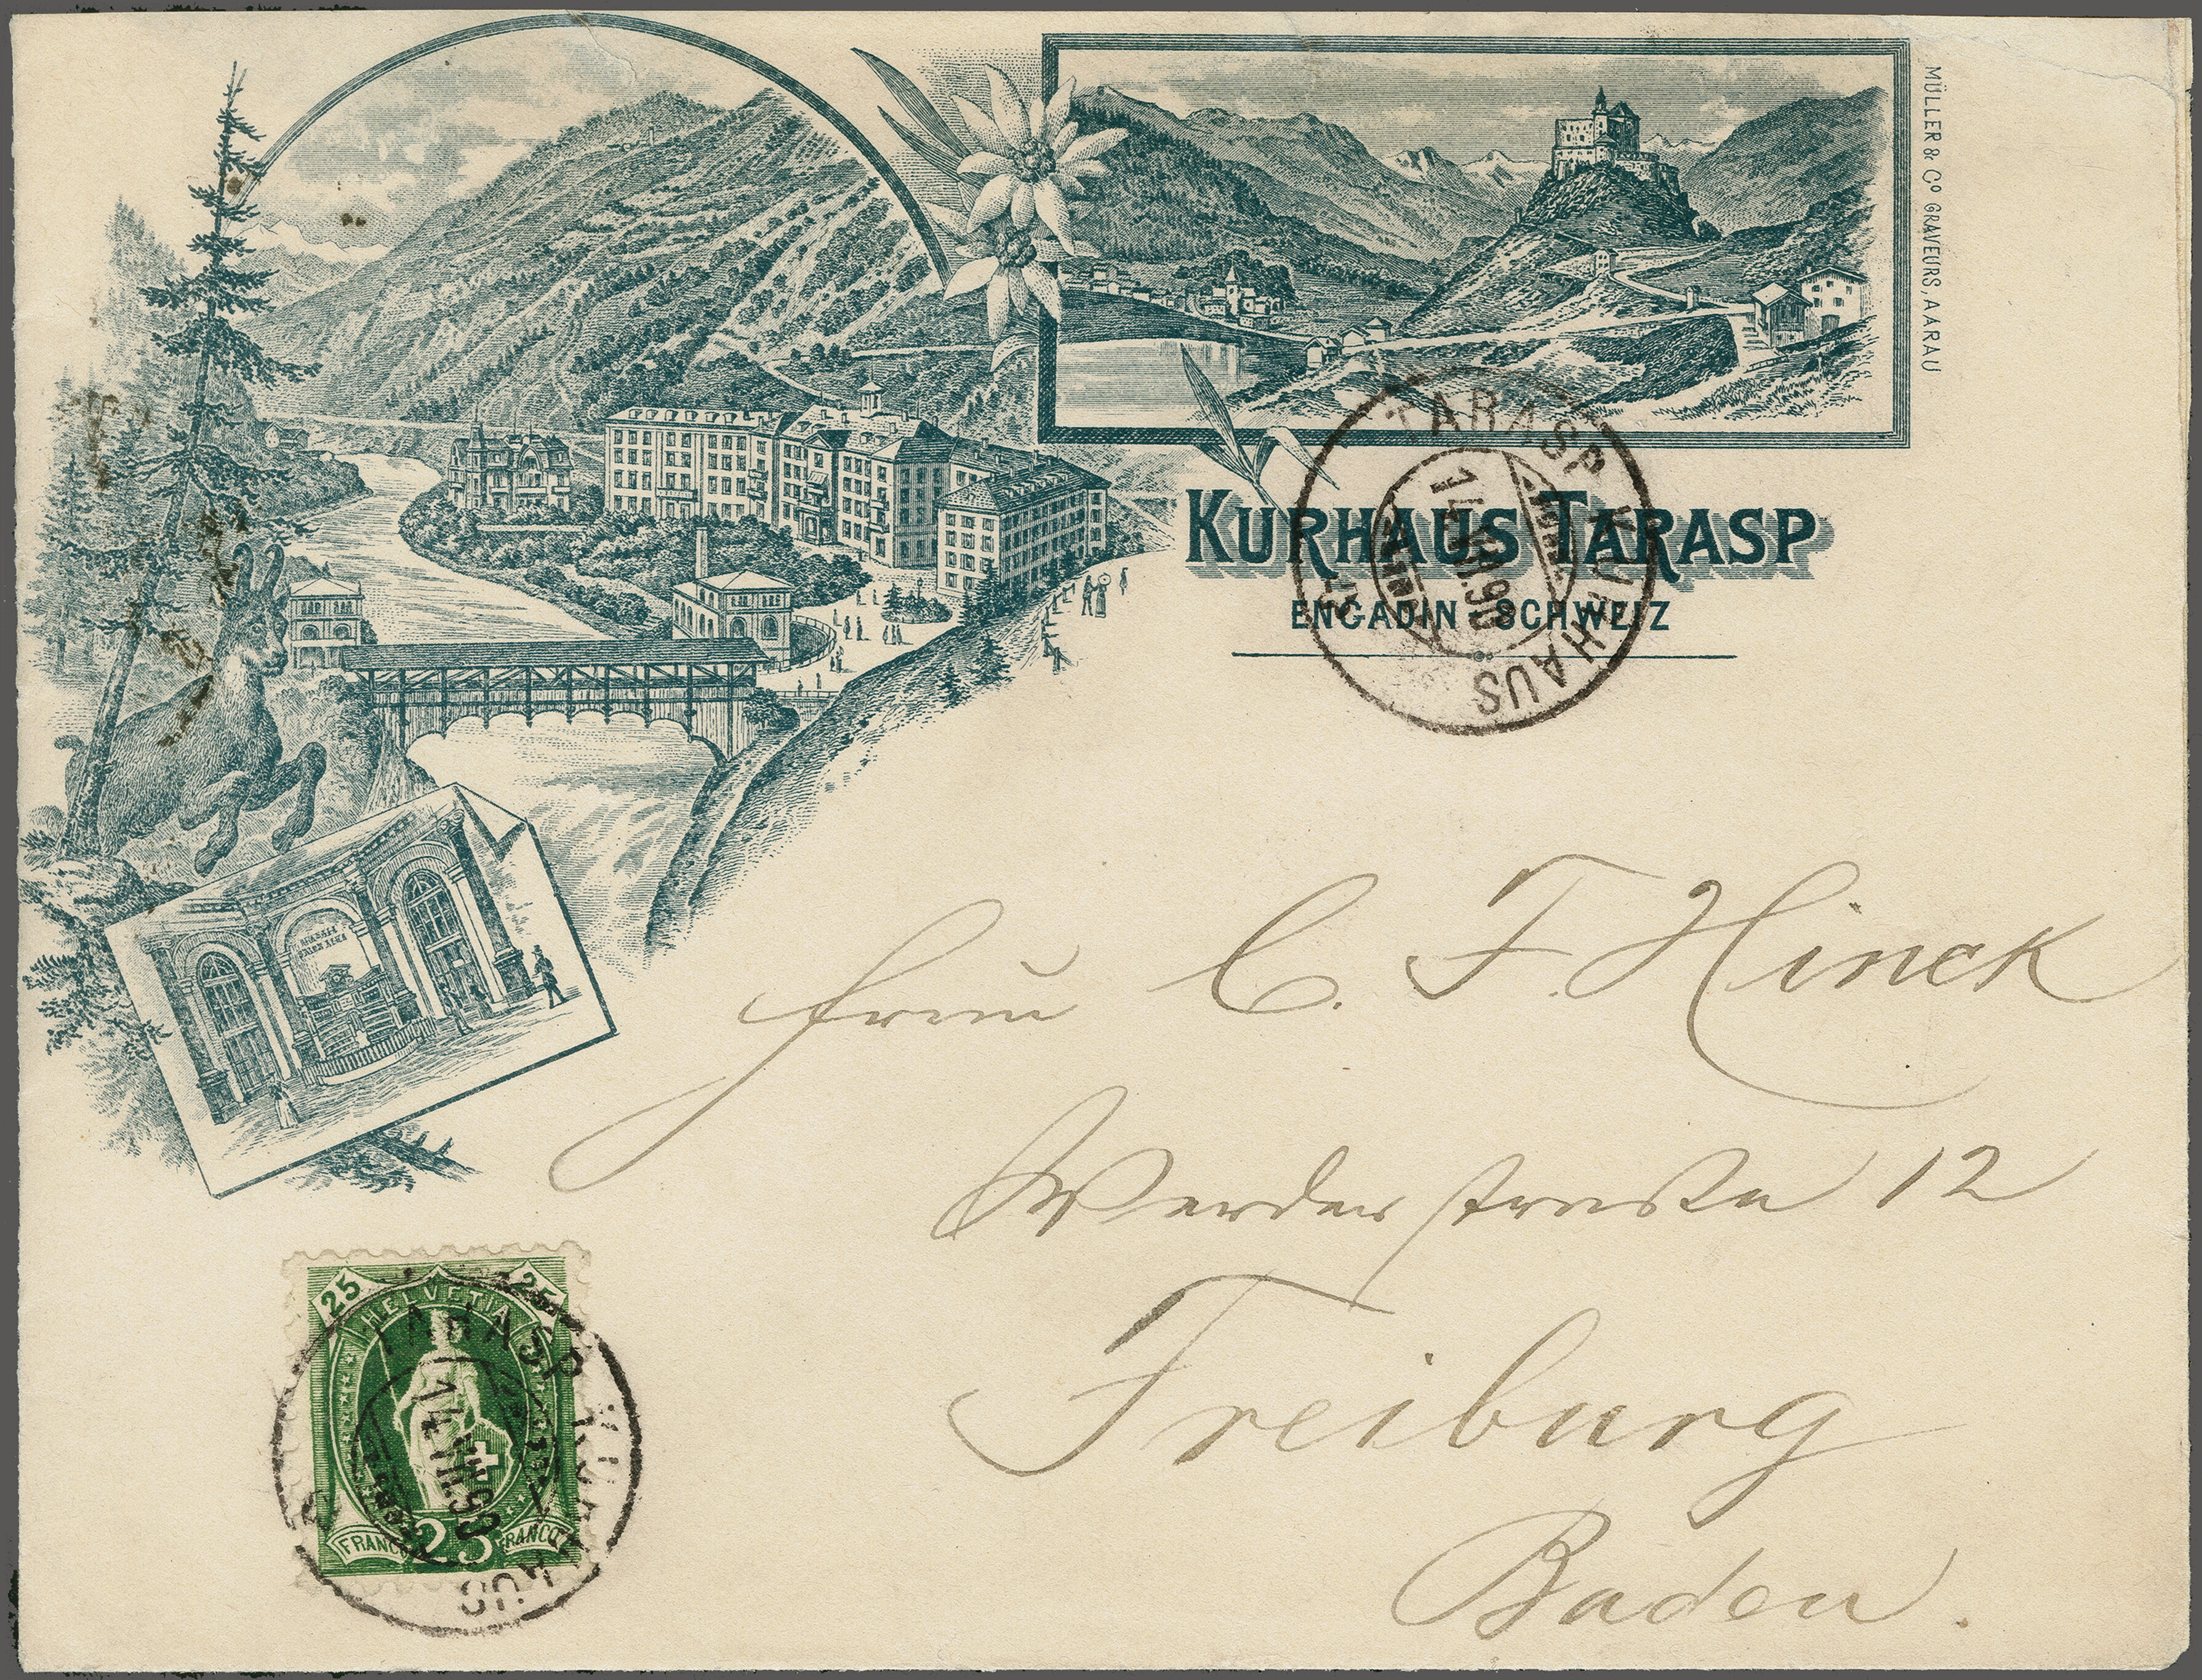 MÜLLER & Cº GRAVEURS, AARAU
KURHAUS TARASP
ENGADIN SCHWEIZ
TARASP KURHAUS
14.VII.90
Frau C. F. Hinck
Werderstraße 12
Freiburg
Baden.
25 HELVETIA 25
FRANCO 25 FRANCO
TARASP KURHAUS
14.VII.90